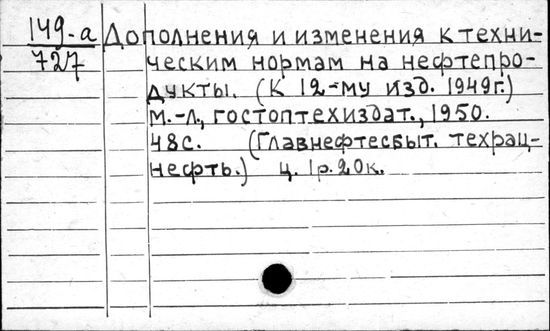 149-а Дополнения и изменения к техни-
727 ческим нормам на нефтепро-
дукты. (К 12-му изд. 1949г.)
М.-Л., Гостоптехиздат., 1950.
48с. (Главнефтесбыт. Техрац-
нефть.) ц. 1р.20к.